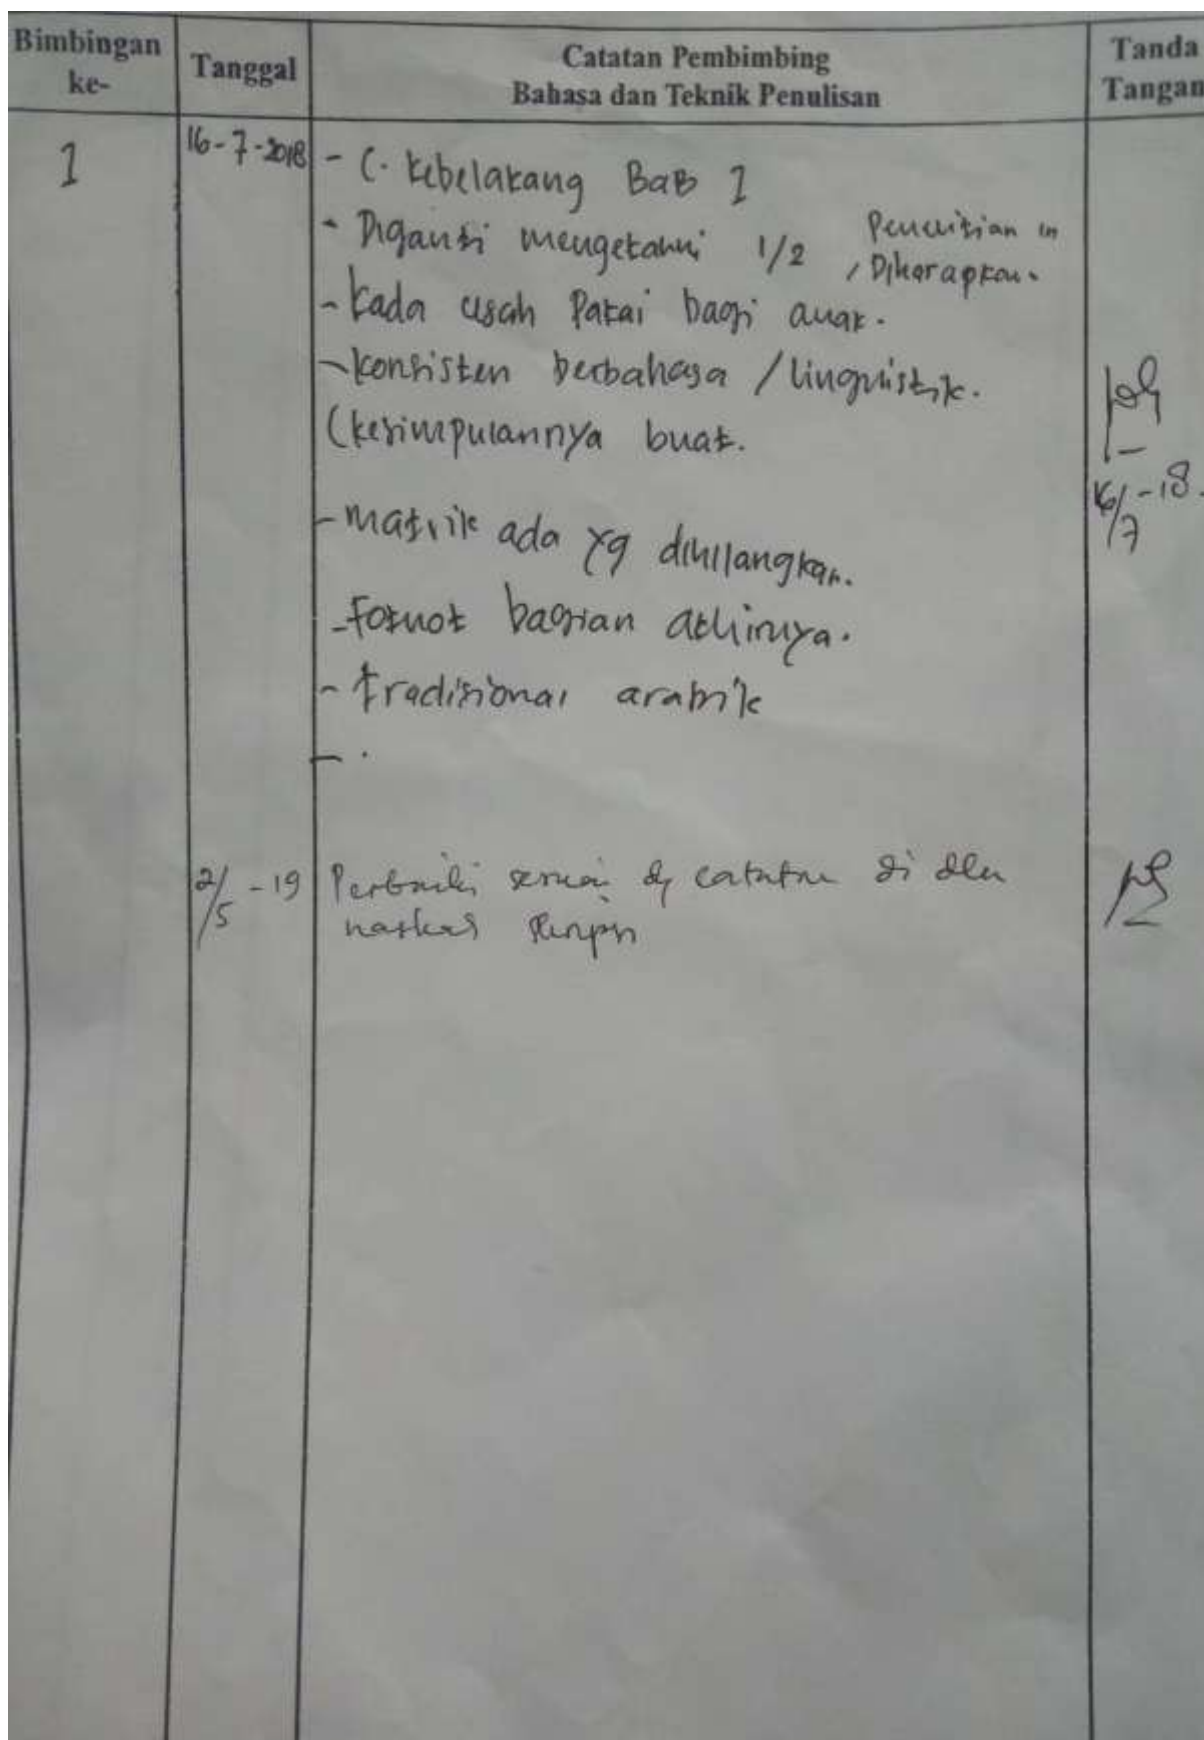 Bimbingan ke-
Tanggal
Catatan Pembimbing
Bahasa dan Teknik Penulisan
Tanda Tangan
1
16-7-2018
- C. kebelakang BaB 1
- Diganti mengetahui 1/2 , Penelitian in Diharapkan.
- kada usah Pakai bagi anak.
- konsisten berbahasa / linguistik.
(kesimpulannya buat.
16/7 -18.
- matrik ada yg dihilangkan.
- Fotnot bagian akhirnya.
- tradisional arabik
- .
2/5 -19
Perbaiki sesuai dg catatan di dlm
naskah skripsi